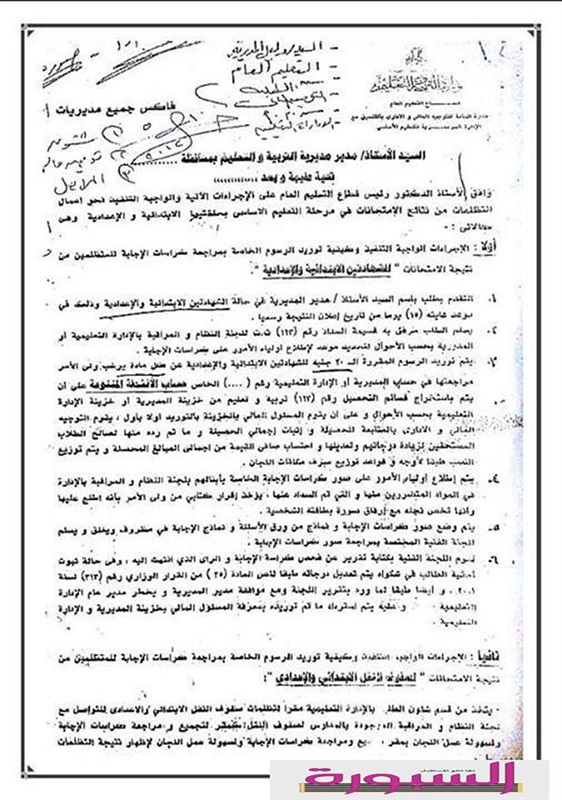 السيد وكيل المديرية
التعليم العام
وزارة التربية والتعليم
قطاع التعليم العام
فاكس جميع مديريات
الإدارة المركزية للتعليم الأساسى
السيد الأستاذ/ مدير مديرية التربية و التعليم بمحافظة
تحية طيبة و بعد
وافق الأستاذ الدكتور رئيس قطاع التعليم العام على الإجراءات الآتية والواجبة التنفيذ نحو أعمال
التظلمات من نتائج الإمتحانات في مرحلة التعليم الاساسى بحلقتيها الابتدائية و الإعدادية وهى
كالاتى :-
أولا : الإجراءات الواجبة التنفيذ وكيفية توريد الرسوم الخاصة بمراجعة كراسات الإجابة للمتظلمين من
نتيجة الامتحانات " للشهادتين الابتدائية والإعدادية "
١- التقدم بطلب باسم السيد الأستاذ / مدير المديرية في حالة الشهادتين الابتدائية والإعدادية وذلك في
موعد غايته (١٥) يوما من تاريخ إعلان النتيجة رسميا .
٢- يسلم الطلب مرفق به قسيمة السداد رقم (١٢٣) ت للجنة النظام و المراقبة بالإدارة التعليمية أو
المديرية بحسب الأحوال لتحديد موعد لإطلاع أولياء الأمور على كراسات الإجابة .
٣- يتم توريد الرسوم المقررة الـ ٢٠ جنيه للشهادتين الابتدائية والإعدادية عن كل مادة يرغب ولى الأمر
مراجعتها في حساب المديرية أو الإدارة التعليمية رقم (....) الخاص حساب الأنشطة المتنوعة على أن
يتم باستخراج قسائم التحصيل رقم (١٢٣) تربية و تعليم من خزينة المديرية أو خزينة الإدارة
التعليمية بحسب الأحوال و على أن يقوم المسئول المالي بالخزينة بالتوريد أولا بأول ، يقوم التوجيه
المالي و الادارى بالمتابعة للحصيلة و إثبات إجمالي الحصيلة و ما تم رده منها لصالح الطلاب
المستحقين لزيادة درجاتهم وتعديلها و احتساب صافى القيمة من إجمالى المبالغ المحصلة و يتم توزيع
النسب طبقا لأوجه و قواعد توزيع صرف مكافآت اللجان .
٤- يتم إطلاع أولياء الأمور على صور كراسات الإجابة الخاصة بأبنائهم بلجنة النظام و المراقبة بالإدارة
في المواد المتضررين منها و التي تم السداد عنها ، يؤخذ إقرار كتابي من ولى الأمر بأنه إطلع عليها
وأنها تخص نجله مع إرفاق صورة بطاقته الشخصية .
٥- يتم وضع صور كراسات الإجابة و نماذج من ورق الأسئلة و نماذج الإجابة في مظروف ويغلق و يسلم
للجنة الفنية المختصة بمراجعة صور كراسات الإجابة .
٦- تقوم اللجنة الفنية بكتابة تقرير عن فحص كراسة الإجابة و الراى الذي انتهت اليه ، وفى حالة ثبوت
أحقية الطالب في شكواه يتم تعديل درجاته طبقا لنص المادة (٣٥) من القرار الوزاري رقم (٣١٣) لسنة
و أيضا طبقا لما ورد بتقرير اللجنة ومع موافقة مدير المديرية و يخطر مدير عام الإدارة
التعليمية وعليه يتم استرداد ما تم توريده بمعرفة المسئول المالي بخزينة المديرية و الإدارة
التعليمية .
ثانيا : الإجراءات الواجبة التنفيذ وكيفية توريد الرسوم الخاصة بمراجعة كراسات الإجابة للمتظلمين من
نتيجة الامتحانات " لصفوف النقل الابتدائي والإعدادي " :
- يتخذ من قسم شئون الطلبة بالإدارة التعليمية مقرا لتظلمات صفوف النقل الابتدائي والاعدادى للتواصل مع
لجنة النظام و المراقبة الموجودة بالمدارس لصفوف النقل لتجميع و مراجعة كراسات الإجابة
ولسهولة عمل اللجان بمقر ومراجعة كراسات الإجابة ولسهولة عمل اللجان لإظهار نتيجة التظلمات
السبورة